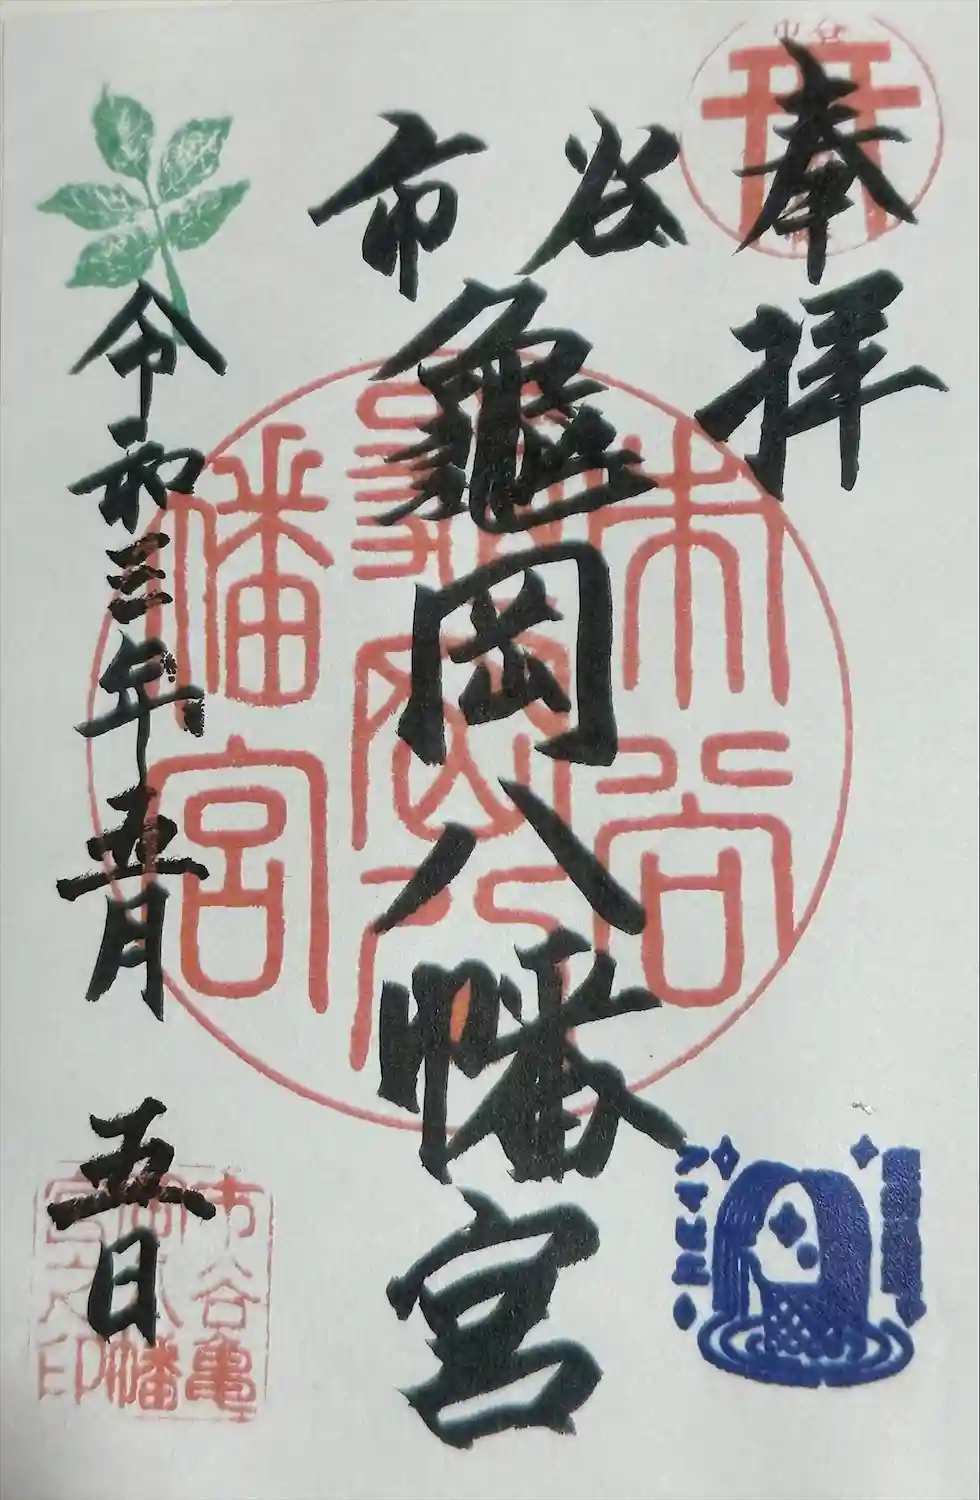 奉拝
市谷
龜岡八幡宮
令和三年五月 五日
市谷
龜岡八
幡宮
市谷亀
岡八幡
宮之印